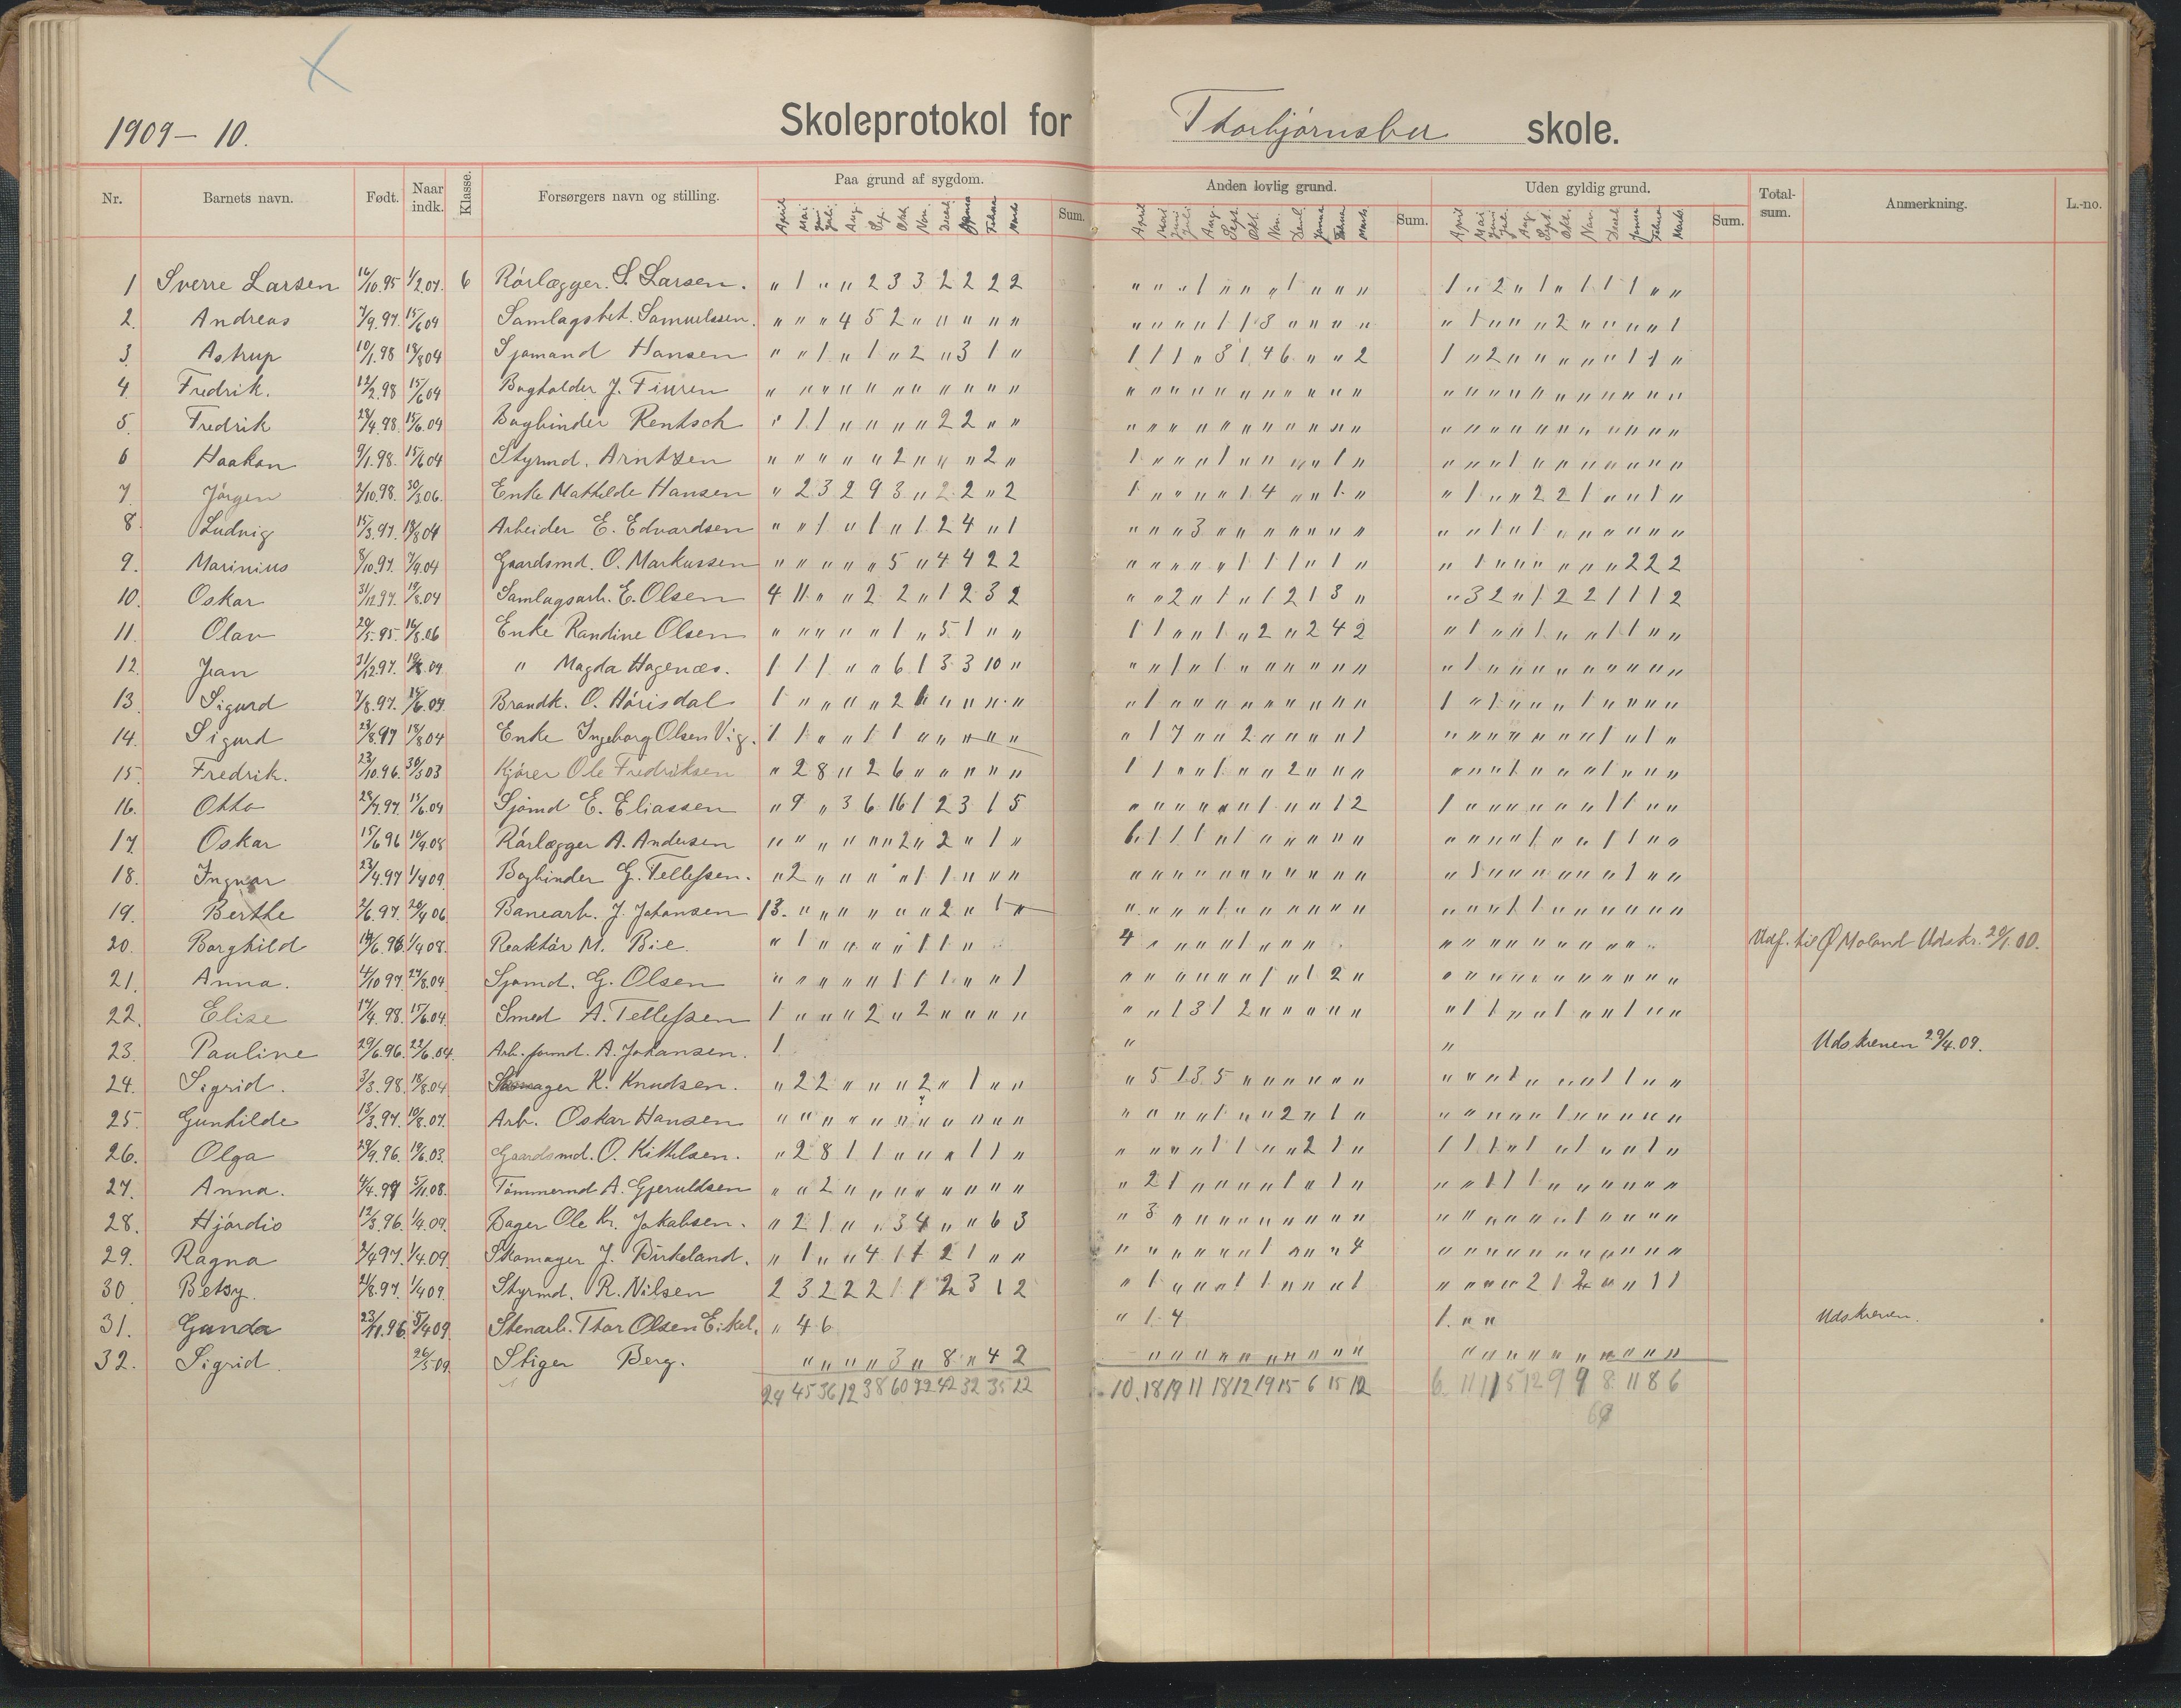 1909 – 10.
Skoleprotokol for Thorbjørnsbu skole.
Nr. Barnets navn. Født. Naar indk. Klasse. Forsørgers navn og stilling. Paa grund af sygdom. Sum. Anden lovlig grund. Sum. Uden gyldig grund. Sum. Total-sum. Anmerkning. L.-no.
April Mai Juni Juli Aug. Sep. Okt. Nov. Decb. Janua Februa Marts April Mai Juni Juli Aug. Sept. Okt. Nov. Decb. Janua Februa Marts April Mai Juni Juli Aug. Sept. Okt. Nov. Decb Janua Februa Marts.
1 Sverre Larsen 16/10.95 1/2.07. 6 Rørlægger. S. Larsen. " 1 " " 2 3 3 2 2 2 2 " " " 1 " " " 1 " " " 1 " 2 " 1 " 1 1 1 " "
2. Andreas 7/9.97. 15/6 04 Samlagsbet. Samuelssen. " " " 4 5 2 " " " " " " " " " 1 1 3 " " " " " 1 " " " 2 " " " " 1
3. Astrup 10/1.98 18/8 04 Sjømand Hansen " " 1 " 1 " 2 " 3 1 " 1 1 1 " 3 1 4 6 " " 2 1 " 2 " " " " " 1 1 "
4. Fredrik. 12/2.98 15/6 04 Bogholder J. Finren " " " " " " " " " " " " " " " " " " " " " " " " " " " " " " " " "
5. Fredrik 28/4.98. 15/6.04 Bogbinder Rentsch " 1 1 " " " " 2 2 " " " " " " " " " " " " " " " " " " " " " " " "
6 Haakon 9/1.98. 15/6 04 Styrmd. Arntzen " " " " " 2 " " " 2 " 1 " " " 1 " " " " 1 " " " " 1 " " " " " " "
7. Jørgen 2/10.98. 30/3 06. Enke Mathilde Hansen " 2 3 2 9 3 " 2 2 " 2 1 " " " " 1 4 " " 1 " " 1 " " 2 2 1 " " 1 "
8. Ludvig 15/3.97. 18/8 04 Arbeider E. Edvardsen " " 1 " 1 " 1 2 4 " 1 " " " 3 " " " " " " " " " 1 " 1 " " " " " "
9. Marinius 8/10.97. 7/9.04 Gaardsmd. O. Markussen " " " " " 5 " 4 4 2 2 " " " " " 1 1 1 " 1 " " 1 " " " " " " 2 2 2
10. Oskar 31/12 97. 19/8.04 Samlagsarb. E. Olsen 4 11 " " 2 2 " 1 2 3 2 " " 2 " 1 " 1 2 1 3 " " 3 2 " 1 2 2 1 1 1 2
11. Olav 20/5.95. 16/8.06 Enke Randine Olsen " " " " " 1 " 5 1 " " 1 1 " " 1 " 2 " 2 4 2 " 1 " " 1 " " 1 1 " "
12. Jean 31/12 97. 19/8.04 " Magda Hagenæs. 1 1 1 " " 6 1 3 3 10 " " " 1 " 1 " " " " " " " 1 " " " " " " " " "
13. Sigurd 7/8.97. 15/6.04. Brandk. O. Hørisdal 1 " " " " 2 6 " " " " " 1 " " " " " " " " " 1 " 1 " " " 1 " " " "
14. Sigurd 23/8.97 18/8 04 Enke Ingeborg Olsen Vig. 1 1 " " 1 1 " " " " " " 1 7 " " 2 " " " " 1 " " " " " " " 1 " 1 "
15. Fredrik. 23/10.96. 30/3 03 Kjører Ole Fredriksen " 2 8 " 2 6 " " " " " 1 1 " " 1 " " 2 " " " " " " 1 " " " 1 " " "
16. Otto 29/7.97 15/6.04 Sjømd E. Eliassen " 9 " 3 6 16 1 2 3 1 5 " " " " " " 1 " " 1 2 1 " " " " " " 1 1 " "
17. Oskar 15/6 96 10/9.08 Rørlægger A. Andersen " " " " " " 2 " 2 " 1 " 6 1 1 1 " 1 " " " " " " " " " 1 " " 1 1 " "
18. Ingvar 23/4.97 1/4 09. Bogbinder G. Tellefsen. " 2 " " " " 1 1 " " " " " " " " " " " " " " " 1 " " " " " " 1 " "
19. Berthe 2/6.97. 20/4 06 Banearb. J. Johansen 13. " " " " " " 2 " 1 " " " " " 1 " " " " " " " " " 1 1 " " " " " "
20. Borghild 14/6.96. 1/4 08. Redaktør M. Bie. " 1 " " " " 1 1 " 4 " " " " 1 " " " " " " " " " " " " Udf. til Ø Moland Udskr. 20/1.00.
21. Anna. 4/10 97. 24/8.04. Sjømd. G. Olsen " " " " " 1 1 1 " " 1 " " " " " " 1 " 1 2 " " " " " " " " " " " "
22. Elise 14/4.98. 15/6.04. Smed A. Tellefsen 1 " " " 2 " 2 " " " " " " 1 3 1 2 " " " " " " 1 1 " " 1 " " 1 " "
23. Pauline 29/6.96. 22/6.04. Arb. formd. A. Johansen. 1 " " Udskreven 29/4.09.
24. Sigrid. 3/3.98. 18/8.04. Skomager K. Knudsen. " 2 2 " " " 2 " 1 " " " 5 1 3 5 " " " " " " " " " 1 " " " 1 1 " "
25. Gunhilde 13/3.97. 10/8.07. Arb. Oskar Hansen " " " " " " " " " " " " " " " 1 " " 2 " 1 " " " " " " 1 " " " " "
26. Olga 29/9.96. 19/6.03. Gaardsmd. O. Kittelsen. " 2 8 1 1 " " " 1 1 " " " " " 1 1 " " 2 1 " 1 1 1 " 1 " 1 " " 1 "
27. Anna. 4/4.97 5/11.08. Tømmermd A. Gjeruldsen " " 2 " " " " " " " " " 2 1 " " " " 1 " 1 " " " 1 1 1 " " " " " "
28. Hjørdis 12/3.96. 1/4.09. Bager Ole Kr. Jakobsen. " 2 1 " " 3 4 " " 6 3 " 3 " " " " " " " " " " " " " " " 1 " " " "
29. Ragna 2/4 97. 1/4.09. Skomager J. Birkeland. " 1 " " 4 1 1 2 1 " " " " " " " " 1 " " " 4 " " " " " " " " " " "
30. Betsy. 21/8.97. 1/4 09. Styrmd. R. Nilsen 2 3 2 2 2 1 1 2 3 1 2 " 1 " " " 1 1 " " " 1 " " " " 2 1 2 " " 1 1
31. Gunda 23/11.96. 5/4 09. Stenarb. Thor Olsen Eikel. " 4 6 " 1 4 1. " " Udskreven.
32. Sigrid. 26/5 09. Stiger Berg. " " " " 3 " 8 " 4 2 " " " " " " " " " " " " " " " " " " " "
24 45 36 12 38 60 22 42 32 35 22 10. 18 19 11 18 12 19 15 6 15 12 6. 11 11 5 12 9 9 8 11 8 6